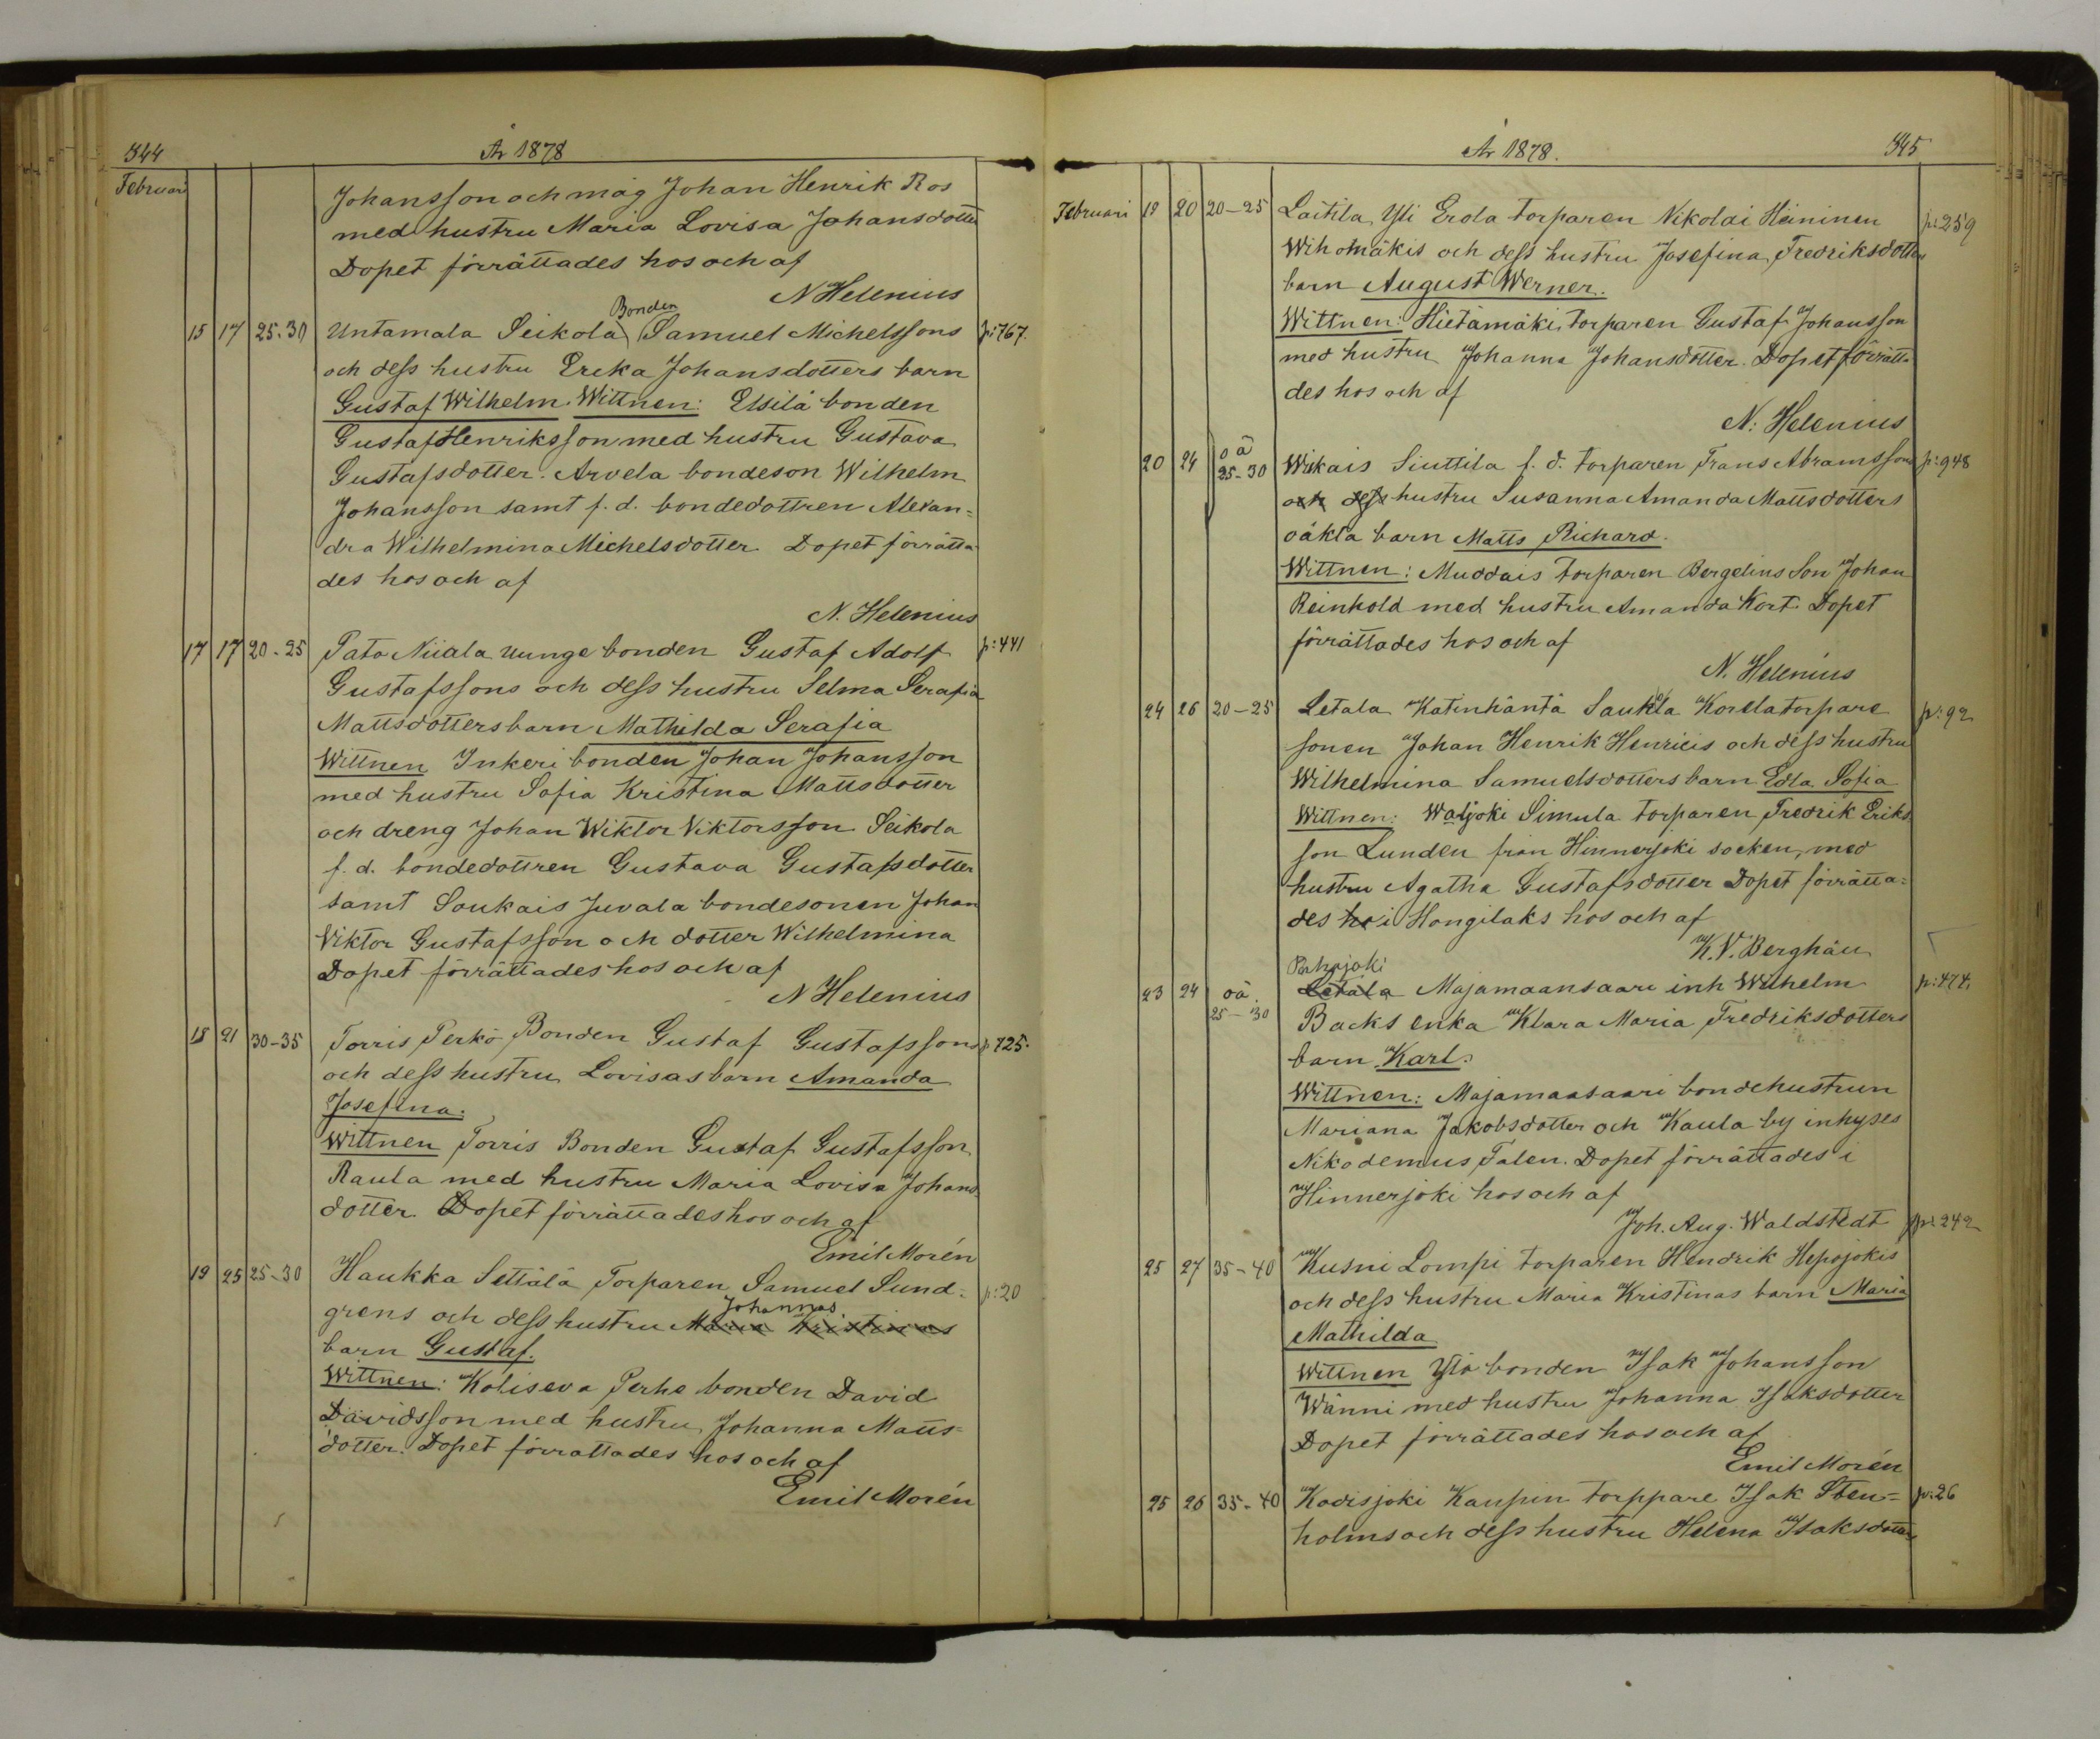 344 År 1878
Februari
Johansson och måg Johan Henrik Ros
med hustru Maria Lovisa Johansdotter
Dopet förrättades hos och af
N Helenius
Bonden
15 17 25-30 Untamala Seikola Samuel Michelssons p: 767.
och dess hustru Erika Johansdotters barn
Gustaf Wilhelm. Wittnen: Elsilä bonden
Gustaf Henriksson med hustru Gustava
Gustafsdotter. Arvela bondeson Wilhelm
Johansson samt f. d. bondedottren Alexan=
dra Wilhelmina Michelsdotter Dopet förrätta-
des hos och af
N. Helenius
17 17 20-25 Pato Niiala unge bonden Gustaf Adolf p: 441
Gustafssons och dess hustru Selma Serafia
Mattsdotters barn Mathilda Serafia
Wittnen Inkeri bonden Johan Johansson
med hustru Sofia Kristina Mattsdotter
och dreng Johan Wiktor Viktorsson Seikola
f. d. bondedottren Gustava Gustafsdotter
samt Soukais Juvala bondesonen Johan
Viktor Gustafsson och dotter Wilhelmina
Dopet förrättades hos och af
N Helenius
18 21 30-35 Torris Perkö Bonden Gustaf Gustafssons p: 725.
och dess hustru Lovisas barn Amanda
Josefina.
Wittnen Torris Bonden Gustaf Gustafsson
Raula med hustru Maria Lovisa Johans-
dotter. Dopet förrättades hos och af
Emil Morén
19 25 25-30 Haukka Settälä Torparen Samuel Sund= p: 20
Johannas
grens och dess hustru Maria Kristinas
barn Gustaf.
Wittnen: Koliseva Perho bonden David
Davidsson med hustru Johanna Matts=
dotter. Dopet förrattades hos och af
Emil Morén
År 1878. 345
Februari 19 20 20-25 Laitila Yli Erola torparen Nikolai Heininen p: 259
Wihomäkis och dess hustru Josefina Fredriksdotters
barn August Werner.
Wittnen: Hietamäki torparen Gustaf Johansson
med hustru Johanna Johansdotter. Dopet förrätta
des hos och af
N: Helenius
oä
20 24 25-30 Wirkais Siuttila f. d. torparen Frans Abramssons p: 948
och dess hustru Susanna Amanda Mattsdotters
oäkta barn Matts Richard.
Wittnen: Muddais torparen Bergelins Son Johan
Reinhold med hustru Amanda Kort. Dopet
förrättades hos och af
N. Helenius
24 26 20-25 Letala Katinhäntä Saukla Korela torpare p: 92
sonen Johan Henrik Henricis och dess hustru
Wilhelmina Samuelsdotters barn Edla Sofia
Wittnen: Waljoki Simula torparen Fredrik Eriks
son Lunden från Hinnerjoki socken, med
hustru Agatha Gustafsdotter Dopet förrätta=
des ho i Hongilaks hos och af
K. V. Berghäll
23 24 oä. Letala Majamaansaari inh Wilhelm p: 474.
25-30 Backs enka Klara Maria Fredriksdotters
barn Karl.
Wittnen: Majamaasaari bondehustrun
Mariana Jakobsdotter och Kaula by inhyses
Nikodemus Talen. Dopet förrättades i
Hinnerjoki hos och af
Joh. Aug. Waldstedt
25 27 35-40 Kusni Lompi torparen Hendrik Hepojokis p: 242
och dess hustru Maria Kristinas barn Maria
Mathilda
Wittnen Ylö bonden Isak Johansson
Wänni med hustru Johanna Isaksdotter
Dopet förrättades hos och af
Emil Morén
25 26 35-40 Kodisjoki Kaupin torppare Isak Sten= p: 26
holms och dess hustru Helena Isaksdotters